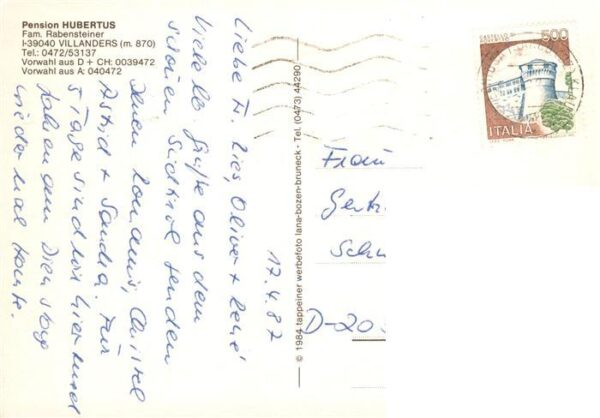 Pension HUBERTUS
Fam. Rabensteiner
I-39040 VILLANDERS (m. 870)
Tel.: 0472/53137
Vorwahl aus D + CH: 0039472
Vorwahl aus A: 040472
17.4.87
Liebe H. Lies, Oliver + René
viele lb. Grüße aus dem
schönen Südtirol senden
Ihnen Christel
Astrid + Sandra. Für
5 Tage sind wir hier und
fahren am Dienstag
wieder mal heute.
© 1984 tappeiner werbefoto lana-bozen-bruneck · Tel. (0473) 44290
500
ITALIA
Frau
D-20